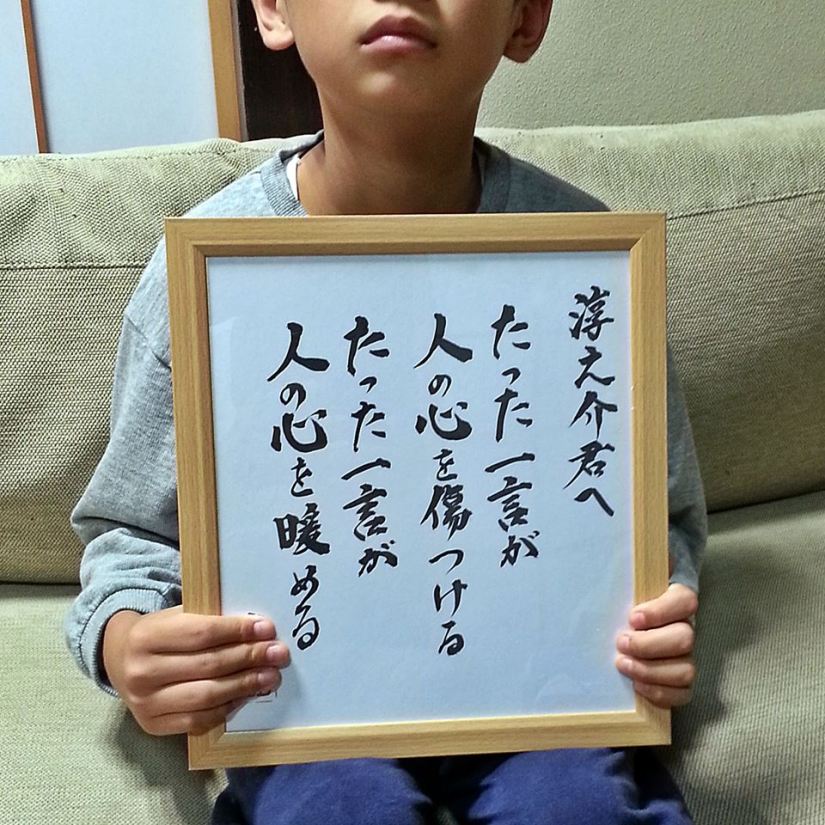 淳之介君へ
たった一言が
人の心を傷つける
たった一言が
人の心を暖める